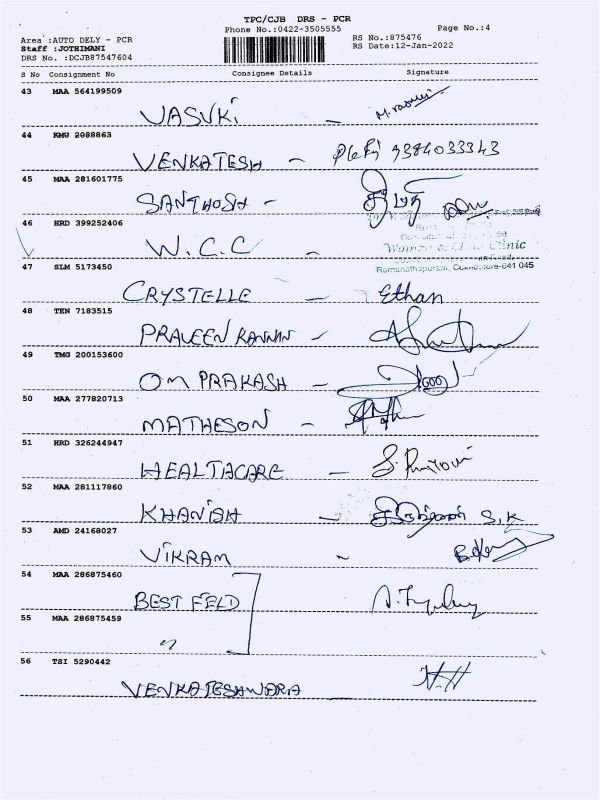 TPC/CJB DRS - PCR
Phone No.:0422-3505555 Page No.:4
Area :AUTO DELY - PCR RS No.:875476
Staff :JOTHIMANI RS Date:12-Jan-2022
DRS No. :DCJB87547604
S No Consignment No Consignee Details Signature
43 MAA 564199509
VASUKI -
44 KMU 2088863
VENKATESH - 9384033343
45 MAA 281601775
SANTHOSH -
46 HRD 399252406
W.C.C - Clinic
Ramanathapuram, Coimbatore-641 045
47 SLM 5173450
CRYSTELLE - Ethan
48 TEN 7183515
PRAVEEN KANNAN -
49 TMG 200153600
OM PRAKASH -
50 MAA 277820713
MATHESON -
51 HRD 326244947
HEALTHCARE -
52 MAA 281117860
KHANISH - S.K
53 AMD 24168027
VIKRAM -
54 MAA 286875460
BEST FELD
55 MAA 286875459
"
56 TSI 5290442
VENKATESHWARA